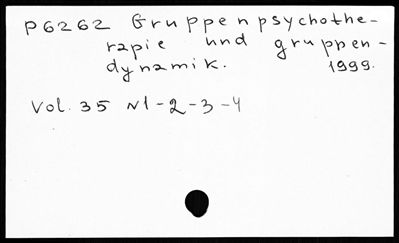 P6262 Gruppenpsychothe-
rapie und gruppen-
dynamik. 1999.
Vol. 35 N1-2-3-4